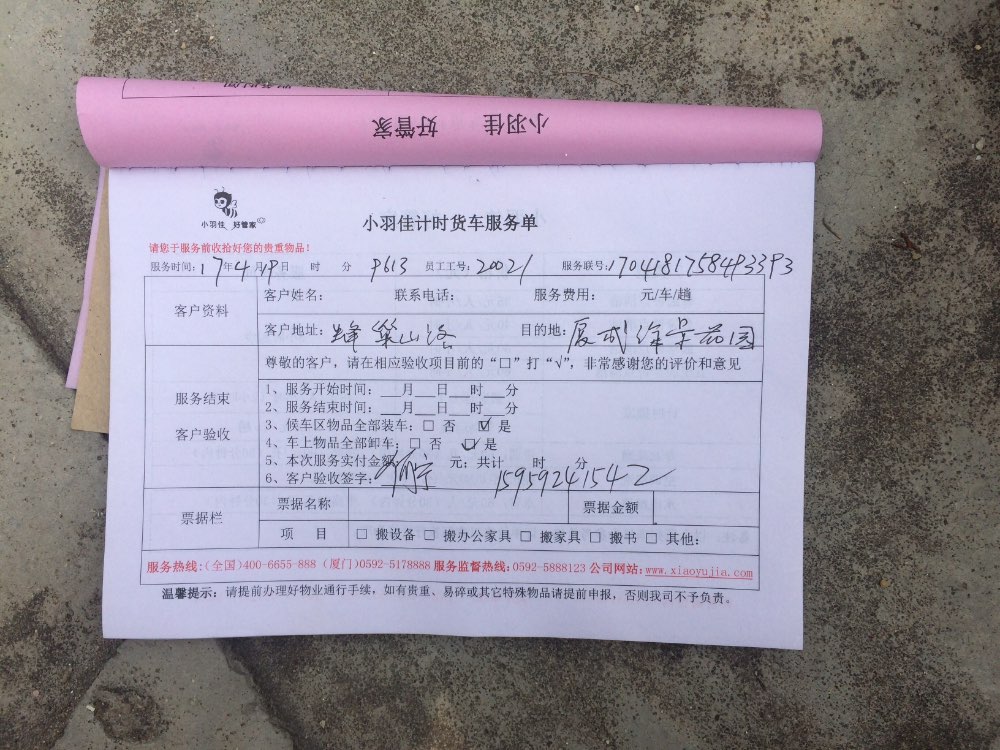 小羽佳 好管家
小羽佳 好管家
小羽佳计时货车服务单
请您于服务前收拾好您的贵重物品！
服务时间：17年4月19日 时 分 9613 员工工号：20021 服务联号：1704181758493393
客户资料
客户姓名： 联系电话： 服务费用： 元/车/趟
客户地址：蜂巢山路 目的地：厦成 花园
服务结束
客户验收
尊敬的客户，请在相应验收项目前的“□”打“√”，非常感谢您的评价和意见
1、服务开始时间：___月___日___时___分
2、服务结束时间：___月___日___时___分
3、候车区物品全部装车：□ 否 ☑ 是
4、车上物品全部卸车：□ 否 ☑ 是
5、本次服务实付金额 元；共计 时 分
6、客户验收签字： 15959241542
票据栏
票据名称 票据金额
项 目 □ 搬设备 □ 搬办公家具 □ 搬家具 □ 搬书 □ 其他：
服务热线：（全国）400-6655-888（厦门）0592-5178888 服务监督热线：0592-5888123 公司网站：www.xiaoyujia.com
温馨提示：请提前办理好物业通行手续，如有贵重、易碎或其它特殊物品请提前申报，否则我司不予负责。